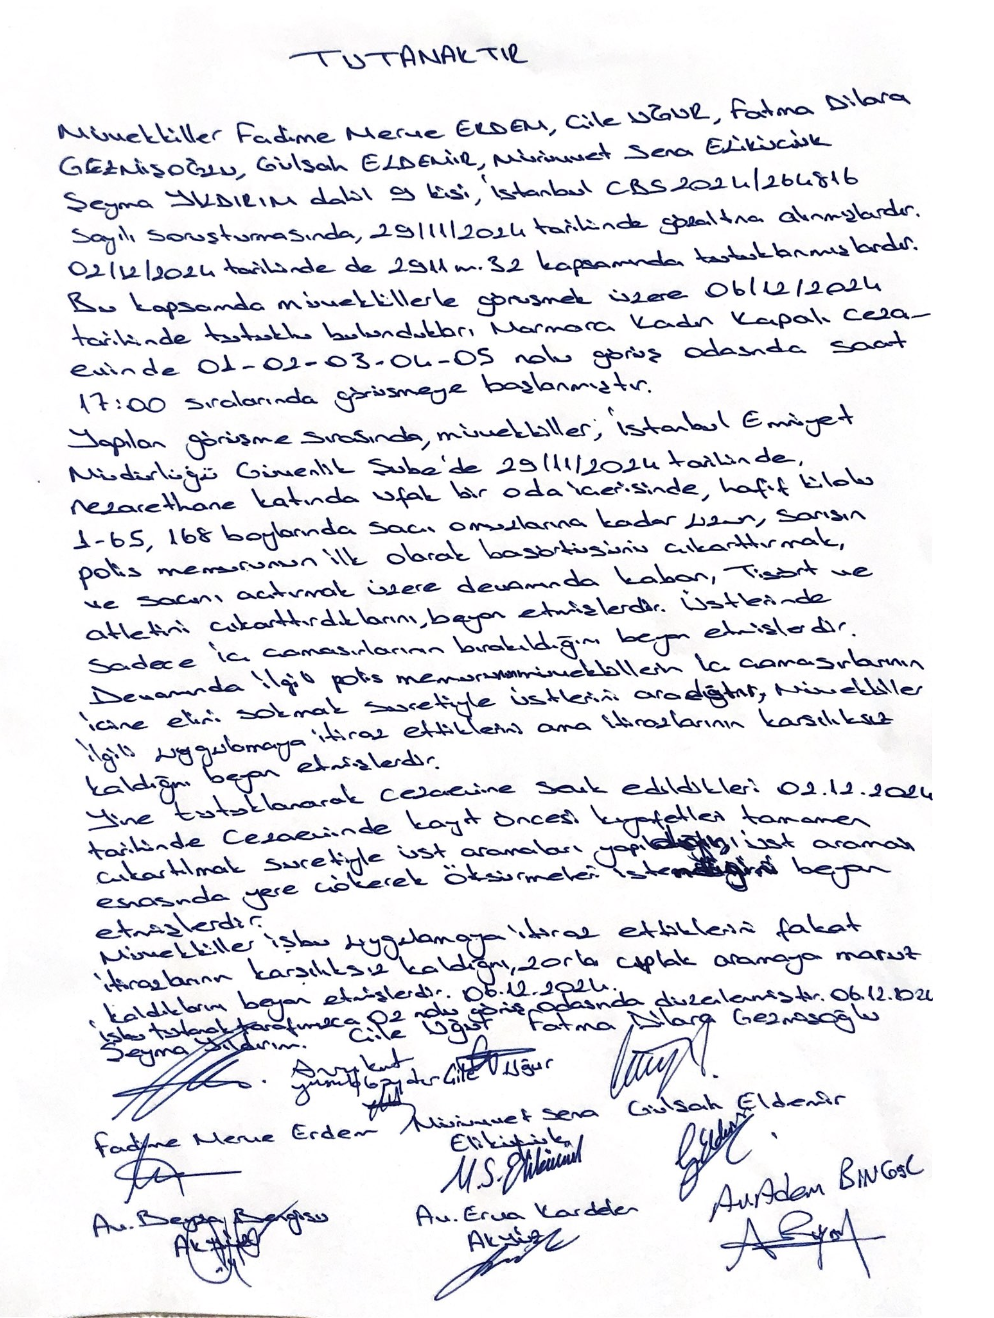 TUTANAKTIR
Müvekkiller Fadime Merve ERDEM, Cile UĞUR, Fatma Dilara
GEZMİŞOĞLU, Gülşah ELDEMİR, Mürüvvet Sena Elikücük
Şeyma YILDIRIM dahil 9 kişi, İstanbul CBS 2024/264816
Sayılı soruşturmasında, 29/11/2024 tarihinde gözaltına alınmışlardır.
02/12/2024 tarihinde de 2911 m. 32 kapsamında tutuklanmışlardır.
Bu kapsamda müvekkillerle görüşmek üzere 06/12/2024
tarihinde tutuklu bulundukları, Marmara Kadın Kapalı Ceza-
evinde 01-02-03-04-05 nolu görüş odasında saat
17:00 sıralarında görüşmeye başlanmıştır.
Yapılan görüşme sırasında, müvekkiller; İstanbul Emniyet
Müdürlüğü Güvenlik Şube'de 29/11/2024 tarihinde,
nezarethane katında ufak bir oda içerisinde, hafif kilolu
1-65, 168 boylarında saçı omuzlarına kadar uzun, sarışın
polis memurunun ilk olarak başörtüsünü çıkarttırmak,
ve saçını açtırmak üzere devamında kaban, Tişört ve
atletini çıkarttırdıklarını, beyan etmişlerdir. Üstlerinde
sadece iç çamaşırlarının bırakıldığını beyan etmişlerdir.
Devamında ilgili polis müvekkillerin iç çamaşırlarının
içine elini sokmak suretiyle üstlerini aradığını, Müvekkiller
ilgili uygulamaya itiraz ettiklerini ama itirazlarının karşılıksız
kaldığını beyan etmişlerdir.
Yine tutuklanarak cezaevine sevk edildikleri 02.12.2024
tarihinde Cezaevinde kayıt öncesi kıyafetleri tamamen
çıkartılmak suretiyle üst aramaları üst araması
esnasında yere çökerek öksürmeleri beyan
etmişlerdir.
Müvekkiller işbu uygulamaya itiraz ettiklerini fakat
itirazlarının karşılıksız kaldığını, zorla çıplak aramaya maruz
kaldıklarını beyan etmişlerdir. 06.12.2024.
İşbu tutanak tarafımızca 02 nolu görüş odasında düzenlenmiştir. 06.12.2024
Şeyma Yıldırım. Cile Uğur Fatma Dilara Gezmişoğlu
Avukat
Cile Uğur
Fadime Merve Erdem Mürüvvet Sena Gülşah Eldemir
Elikücük
M.S. Elikücük
Av. Beyza Bengisu Av. Erva Kardelen Av. Adem BİNGÖL
Akyüz